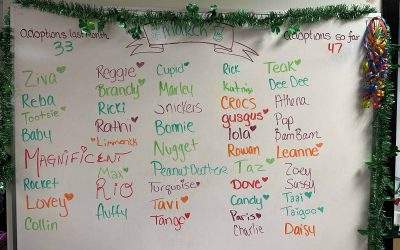 adoptions last month
33
March
adoptions so far
47
Ziva
Reba
Tootsie
Baby
MAGNIFICENT
Rocket
Lovey
Collin
Reggie
Brandy
Ricki
Rathi
Limerick
Max
RIO
fluffy
Cupid
Marley
Snickers
Bonnie
Nugget
Peanut Butter
Turquoise
Tavi
Tango
Rick
Katniss
CROCS
gusgus
lola
Rowan
Taz
Dove
Candy
Paris
Charlie
Teak
Dee Dee
Athena
Pap
BamBam
Leanne
Zoey
Sussy
Taai
Taigoo
Daisy